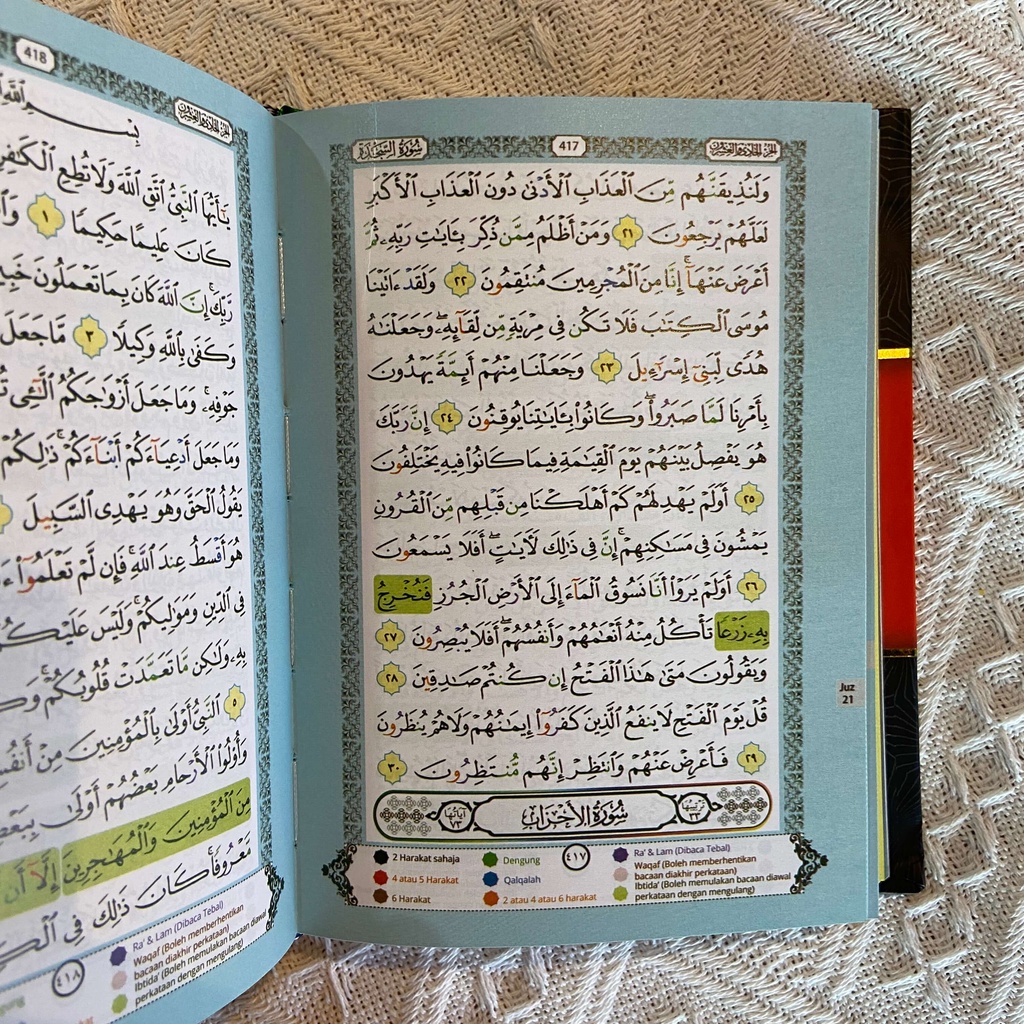 سُورَةُ السَّجْدَة
417
الجزء الحادي والعشرون
وَلَنُذِيقَنَّهُم مِّنَ الْعَذَابِ الْأَدْنَىٰ دُونَ الْعَذَابِ الْأَكْبَرِ
لَعَلَّهُمْ يَرْجِعُونَ ٢١ وَمَنْ أَظْلَمُ مِمَّن ذُكِّرَ بِـَٔايَـٰتِ رَبِّهِۦ ثُمَّ
أَعْرَضَ عَنْهَآ ۚ إِنَّا مِنَ الْمُجْرِمِينَ مُنتَقِمُونَ ٢٢ وَلَقَدْ ءَاتَيْنَا
مُوسَى الْكِتَـٰبَ فَلَا تَكُن فِى مِرْيَةٍ مِّن لِّقَآئِهِۦ ۖ وَجَعَلْنَـٰهُ
هُدًى لِّبَنِىٓ إِسْرَٰٓءِيلَ ٢٣ وَجَعَلْنَا مِنْهُمْ أَئِمَّةً يَهْدُونَ
بِأَمْرِنَا لَمَّا صَبَرُوا۟ ۖ وَكَانُوا۟ بِـَٔايَـٰتِنَا يُوقِنُونَ ٢٤ إِنَّ رَبَّكَ
هُوَ يَفْصِلُ بَيْنَهُمْ يَوْمَ الْقِيَـٰمَةِ فِيمَا كَانُوا۟ فِيهِ يَخْتَلِفُونَ
٢٥ أَوَلَمْ يَهْدِ لَهُمْ كَمْ أَهْلَكْنَا مِن قَبْلِهِم مِّنَ الْقُرُونِ
يَمْشُونَ فِى مَسَـٰكِنِهِمْ ۚ إِنَّ فِى ذَٰلِكَ لَـَٔايَـٰتٍ ۖ أَفَلَا يَسْمَعُونَ
٢٦ أَوَلَمْ يَرَوْا۟ أَنَّا نَسُوقُ الْمَآءَ إِلَى الْأَرْضِ الْجُرُزِ فَنُخْرِجُ
بِهِۦ زَرْعًا تَأْكُلُ مِنْهُ أَنْعَـٰمُهُمْ وَأَنفُسُهُمْ ۖ أَفَلَا يُبْصِرُونَ ٢٧
وَيَقُولُونَ مَتَىٰ هَـٰذَا الْفَتْحُ إِن كُنتُمْ صَـٰدِقِينَ ٢٨
قُلْ يَوْمَ الْفَتْحِ لَا يَنفَعُ الَّذِينَ كَفَرُوٓا۟ إِيمَـٰنُهُمْ وَلَا هُمْ يُنظَرُونَ
٢٩ فَأَعْرِضْ عَنْهُمْ وَانتَظِرْ إِنَّهُم مُّنتَظِرُونَ ٣٠
ترتيبها ٣٣ سُورَةُ الْأَحْزَابِ آياتها ٧٣
2 Harakat sahaja
4 atau 5 Harakat
6 Harakat
Dengung
Qalqalah
2 atau 4 atau 6 harakat
٤١٧
Ra' & Lam (Dibaca Tebal)
Waqaf (Boleh memberhentikan
bacaan diakhir perkataan)
Ibtida' (Boleh memulakan bacaan diawal
perkataan dengan mengulang)
Juz
21
418
الجزء الحادي والعشرون
بِسْمِ اللَّهِ
يَـٰٓأَيُّهَا النَّبِىُّ اتَّقِ اللَّهَ وَلَا تُطِعِ الْكَـٰفِرِ
كَانَ عَلِيمًا حَكِيمًا ١ وَاتَّ
رَّبِّكَ ۚ إِنَّ اللَّهَ كَانَ بِمَا تَعْمَلُونَ خَبِي
وَكَفَىٰ بِاللَّهِ وَكِيلًا ٣ مَّا جَعَلَ
جَوْفِهِۦ ۚ وَمَا جَعَلَ أَزْوَٰجَكُمُ الَّـٰٓـِٔى تُ
وَمَا جَعَلَ أَدْعِيَآءَكُمْ أَبْنَآءَكُمْ ۚ ذَٰلِكُمْ
يَقُولُ الْحَقَّ وَهُوَ يَهْدِى السَّبِيلَ
هُوَ أَقْسَطُ عِندَ اللَّهِ ۚ فَإِن لَّمْ تَعْلَمُوٓا۟ ءَ
فِى الدِّينِ وَمَوَٰلِيكُمْ ۚ وَلَيْسَ عَلَيْكُمْ
بِهِۦ وَلَـٰكِن مَّا تَعَمَّدَتْ قُلُوبُكُمْ ۚ وَكَ
٥ النَّبِىُّ أَوْلَىٰ بِالْمُؤْمِنِينَ مِنْ أَنفُسِ
وَأُو۟لُوا۟ الْأَرْحَامِ بَعْضُهُمْ أَوْلَىٰ بِبَعْضٍ
مِنَ الْمُؤْمِنِينَ وَالْمُهَـٰجِرِينَ إِلَّآ أَن
مَّعْرُوفًا ۚ كَانَ ذَٰلِكَ فِى الْكِ
Dengung
٤١٨
Ra' & Lam (Dibaca Tebal)
Waqaf (Boleh memberhentikan
bacaan diakhir perkataan)
Ibtida' (Boleh memulakan bacaan diawal
perkataan dengan mengulang)